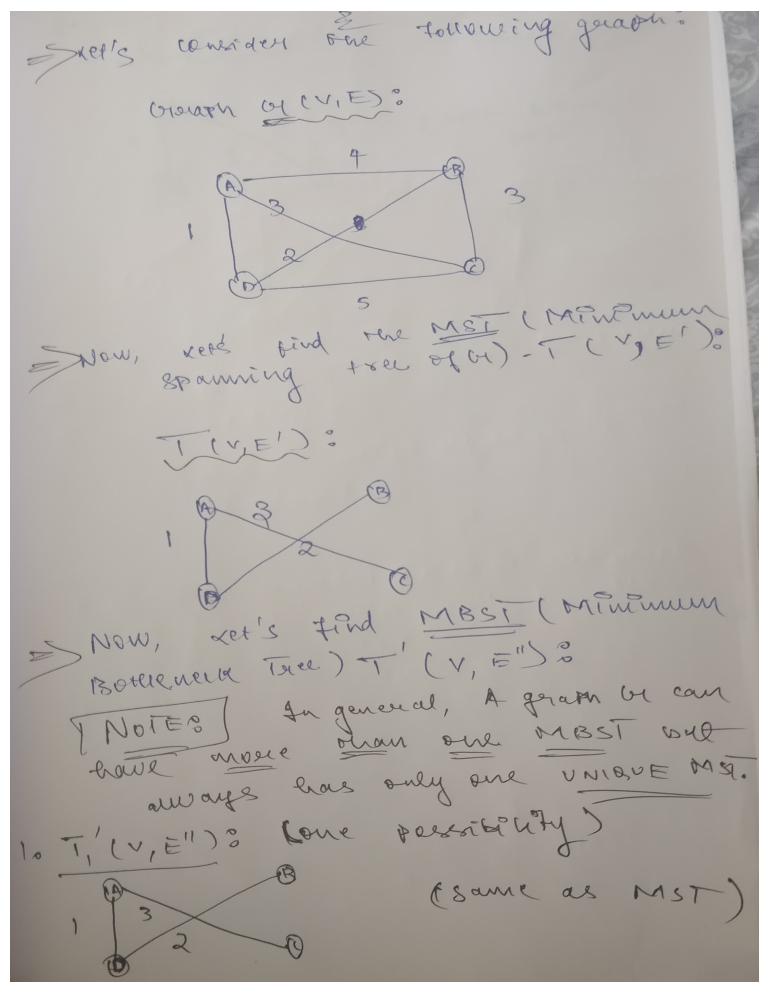 ⇒ Let's consider the following graph:
Graph G(V,E):
A 4 B
1 3 3
2
D C
5
⇒ Now, let's find the MST (Minimum
spanning tree of G) - T(V, E'):
T(V,E'):
A 3 B
1 2
D C
⇒ Now, Let's find MBST (Minimum
Bottleneck Tree) T' (V, E''):
NOTE: In general, A graph G can
have more than one MBST but
always has only one UNIQUE MST.
1. T₁'(V, E''): (one possibility)
A B (same as MST)
1 3 2
D C